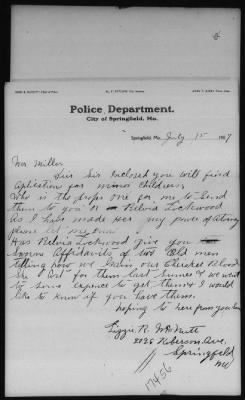 Police Department.
City of Springfield, Mo.
Springfield, Mo. July 15 1907
Mr Miller
Dear Sir Inclosed you will find
aplication for minor Childress,
Who is the proper one for me to Send
them to you or Relvia Lockwood
As I have made her my power of Atney
please let me know
Has Relvia Lockwood give you
Sworn Affidavits of two Old men
telling how we Claim our Cherokee Blood
She got for them last Summer & we went
to Some expence to get them & I would
like to know if you have them.
hoping to here from you Soon
Lizzie R. McNutt
Roberson Ave,
Springfield
Mo
17456